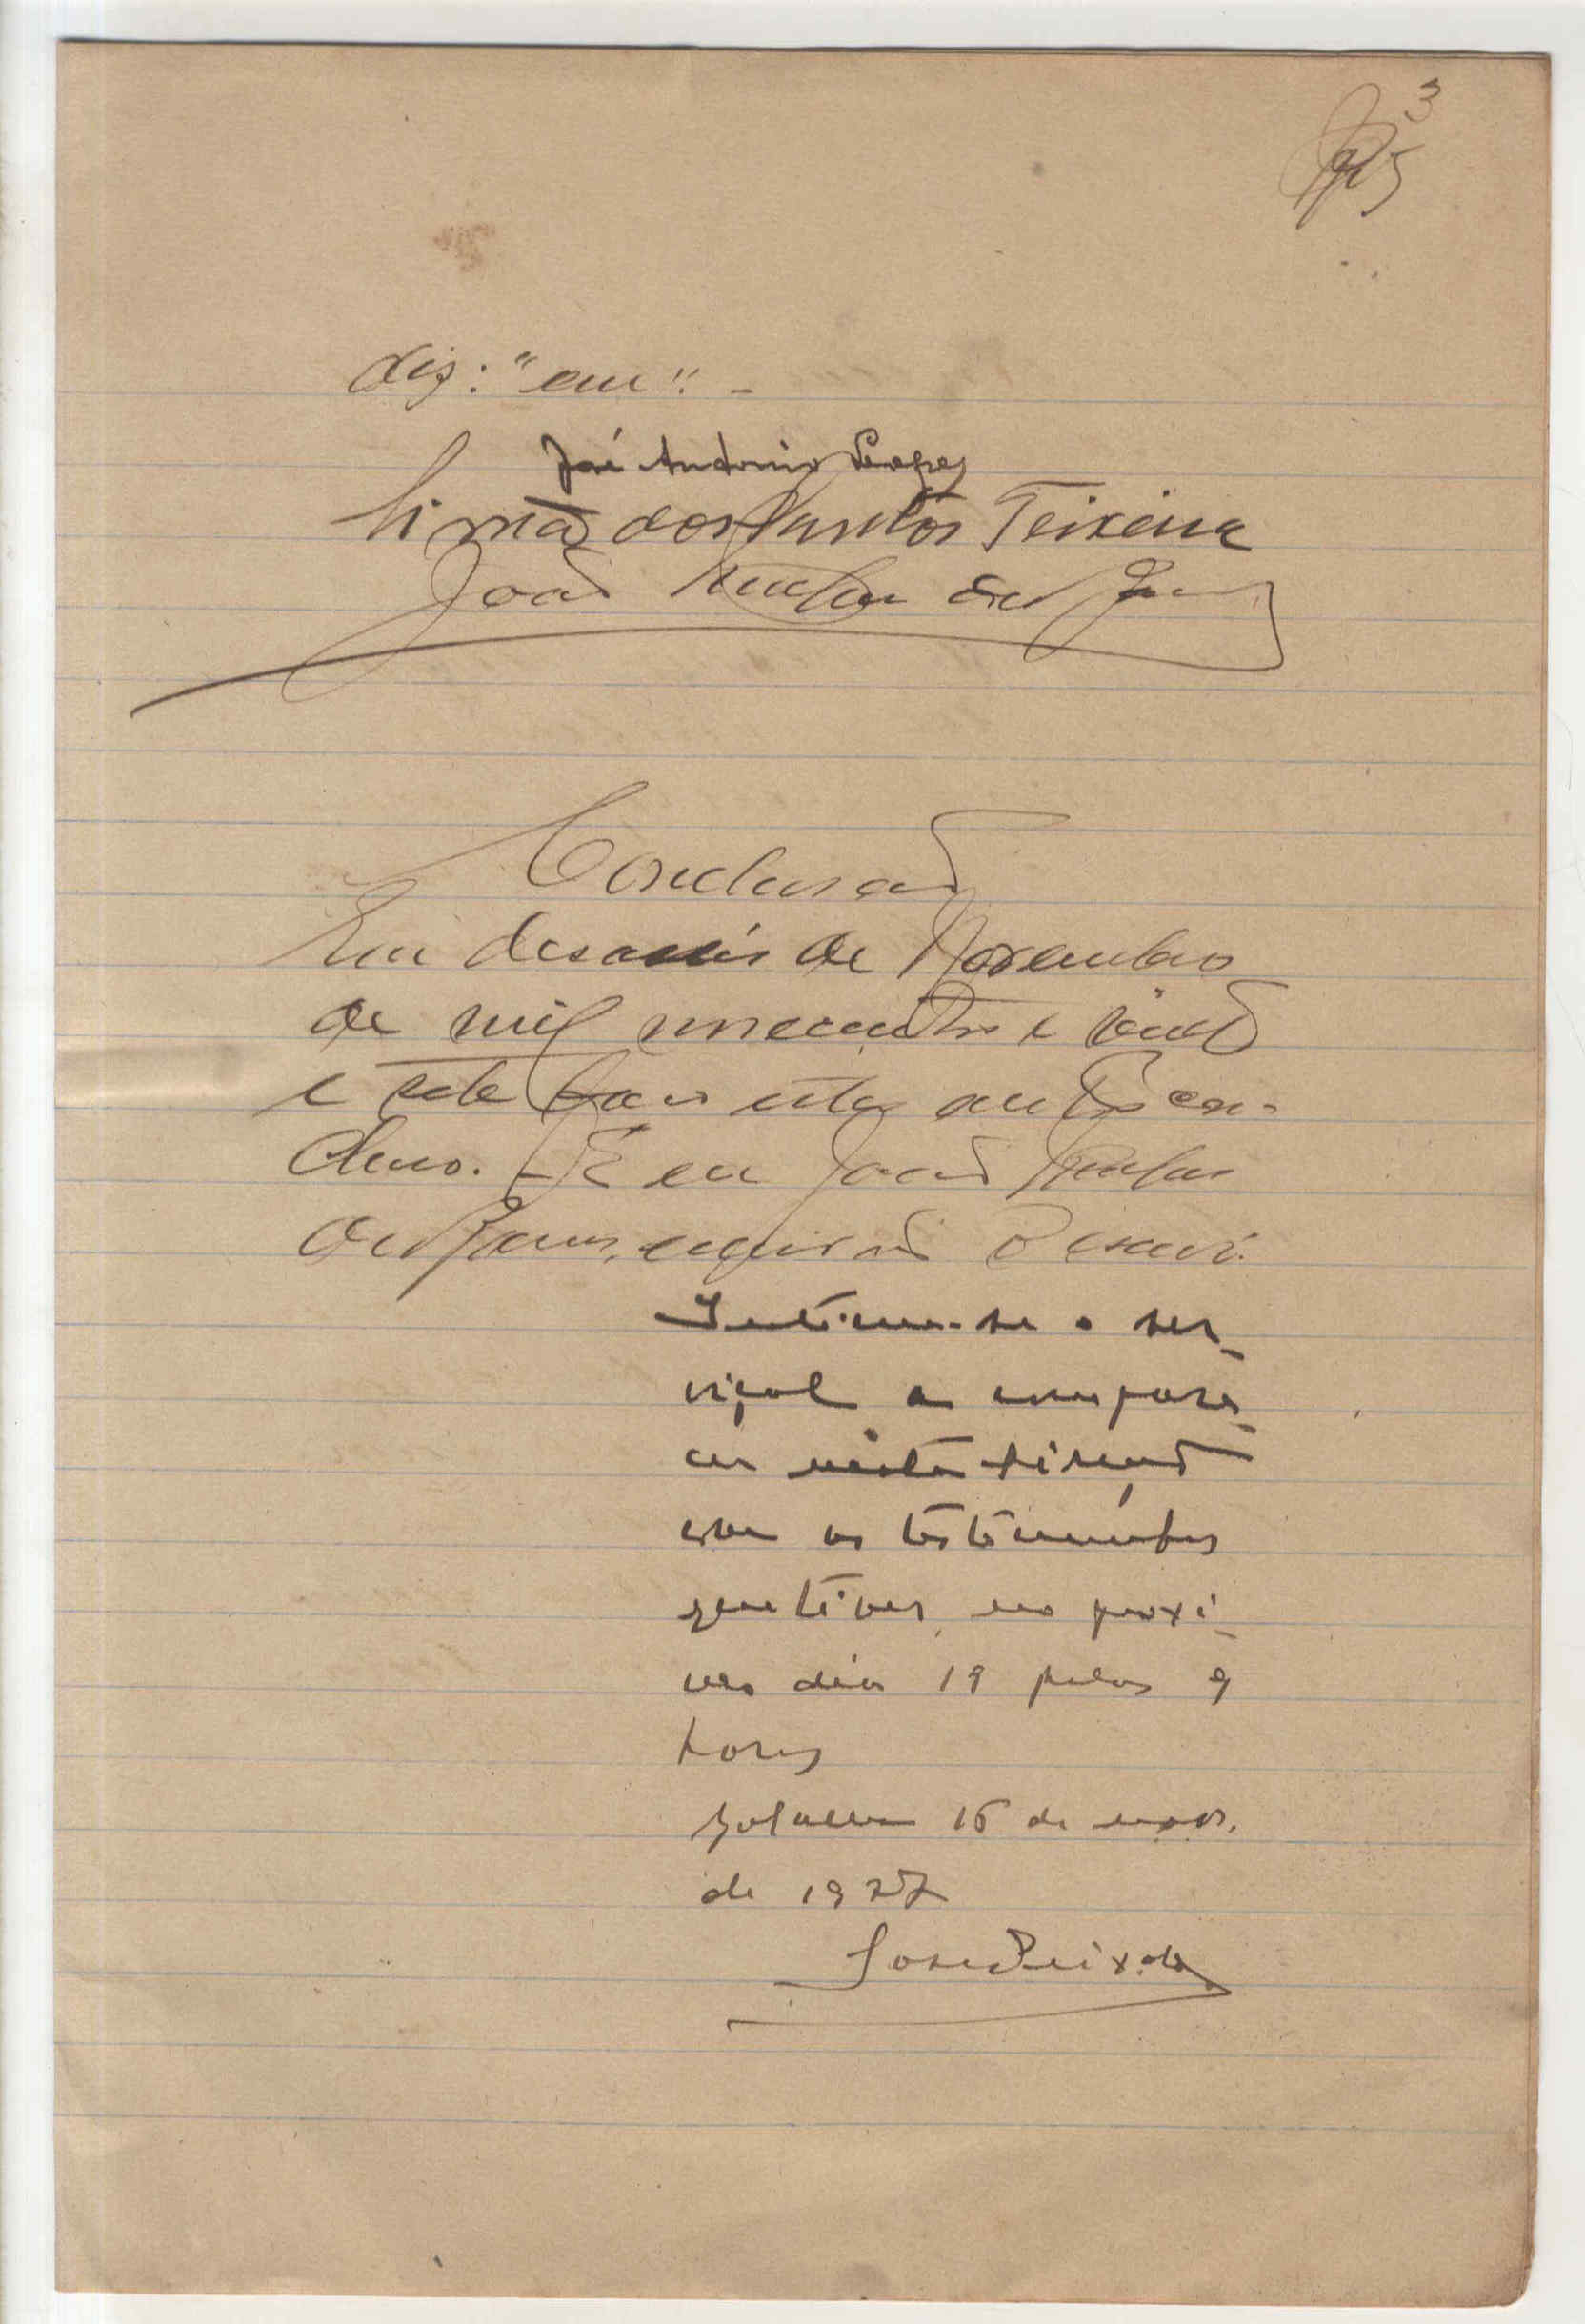 3
diz: "em". -
José Antonio Lopes
Simão dos Santos Teixeira
João
Conclusão
Em desaseis de Novembro
de mil novecentos e vinte
e sete faço estes autos con-
clusos. E eu João
escrivão o escrevi.
Intime-se o ser-
viçal a compare-
cer nesta
com as testemunhas
no proxi-
mo dia 19 pelas 9
horas
16 de nov.
de 1927
José Peixoto